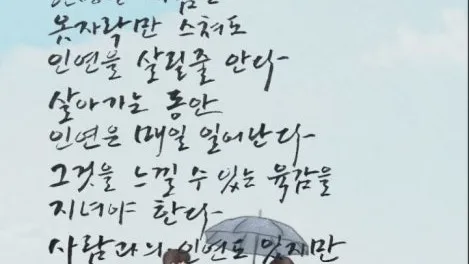 옷자락만 스쳐도
인연을 살릴줄 안다
살아가는 동안
인연은 매일 일어난다
그것을 느낄 수 있는 육감을
지녀야 한다
사람과의 인연도 있지만